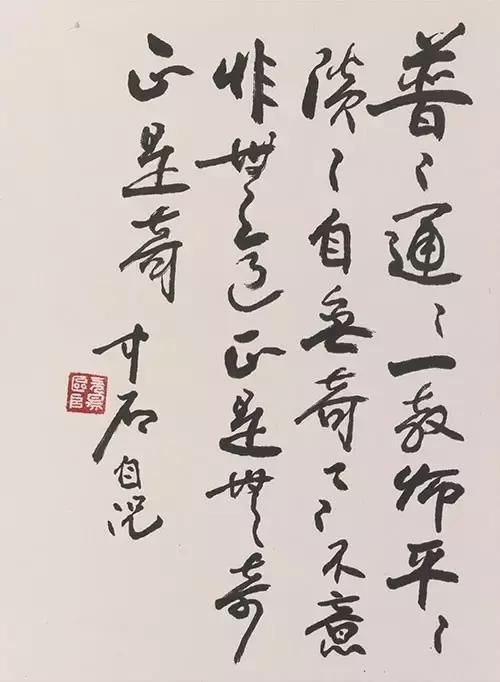 普〻通〻一教师平〻
〻自無奇〻不意
非無正是無奇
正是奇
中石自况